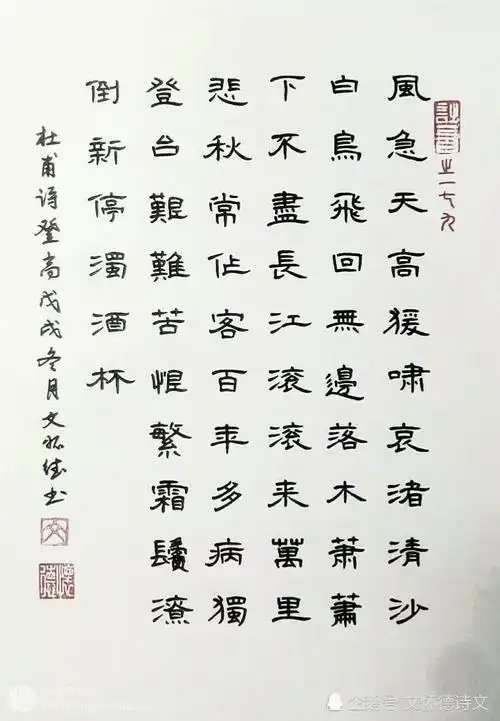 之一七九
風急天高猨嘯哀渚清沙
白鳥飛回無邊落木萧蕭
下不盡長江滾滾来萬里
悲秋常作客百年多病獨
登台艱難苦恨繁霜鬢潦
倒新停濁酒杯
杜甫诗登高戊戌冬月文怀德书
文
懷德
企鹅号 文怀德诗文